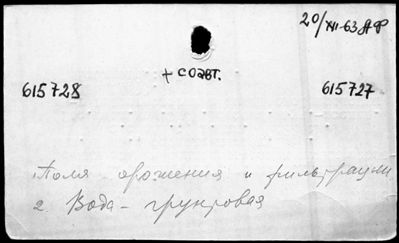 20/XII-63 АФ
+ соавт.
615728 615727
Поля орошения и фильтрации
2. Вода - грунтовая